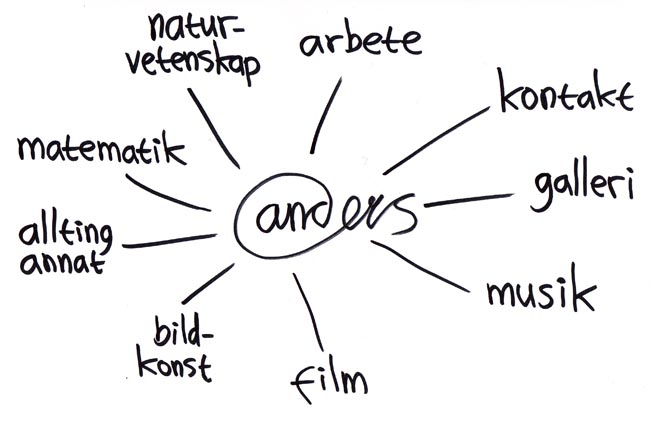 natur-
vetenskap
arbete
kontakt
matematik
galleri
anders
allting
annat
musik
bild-
konst
film